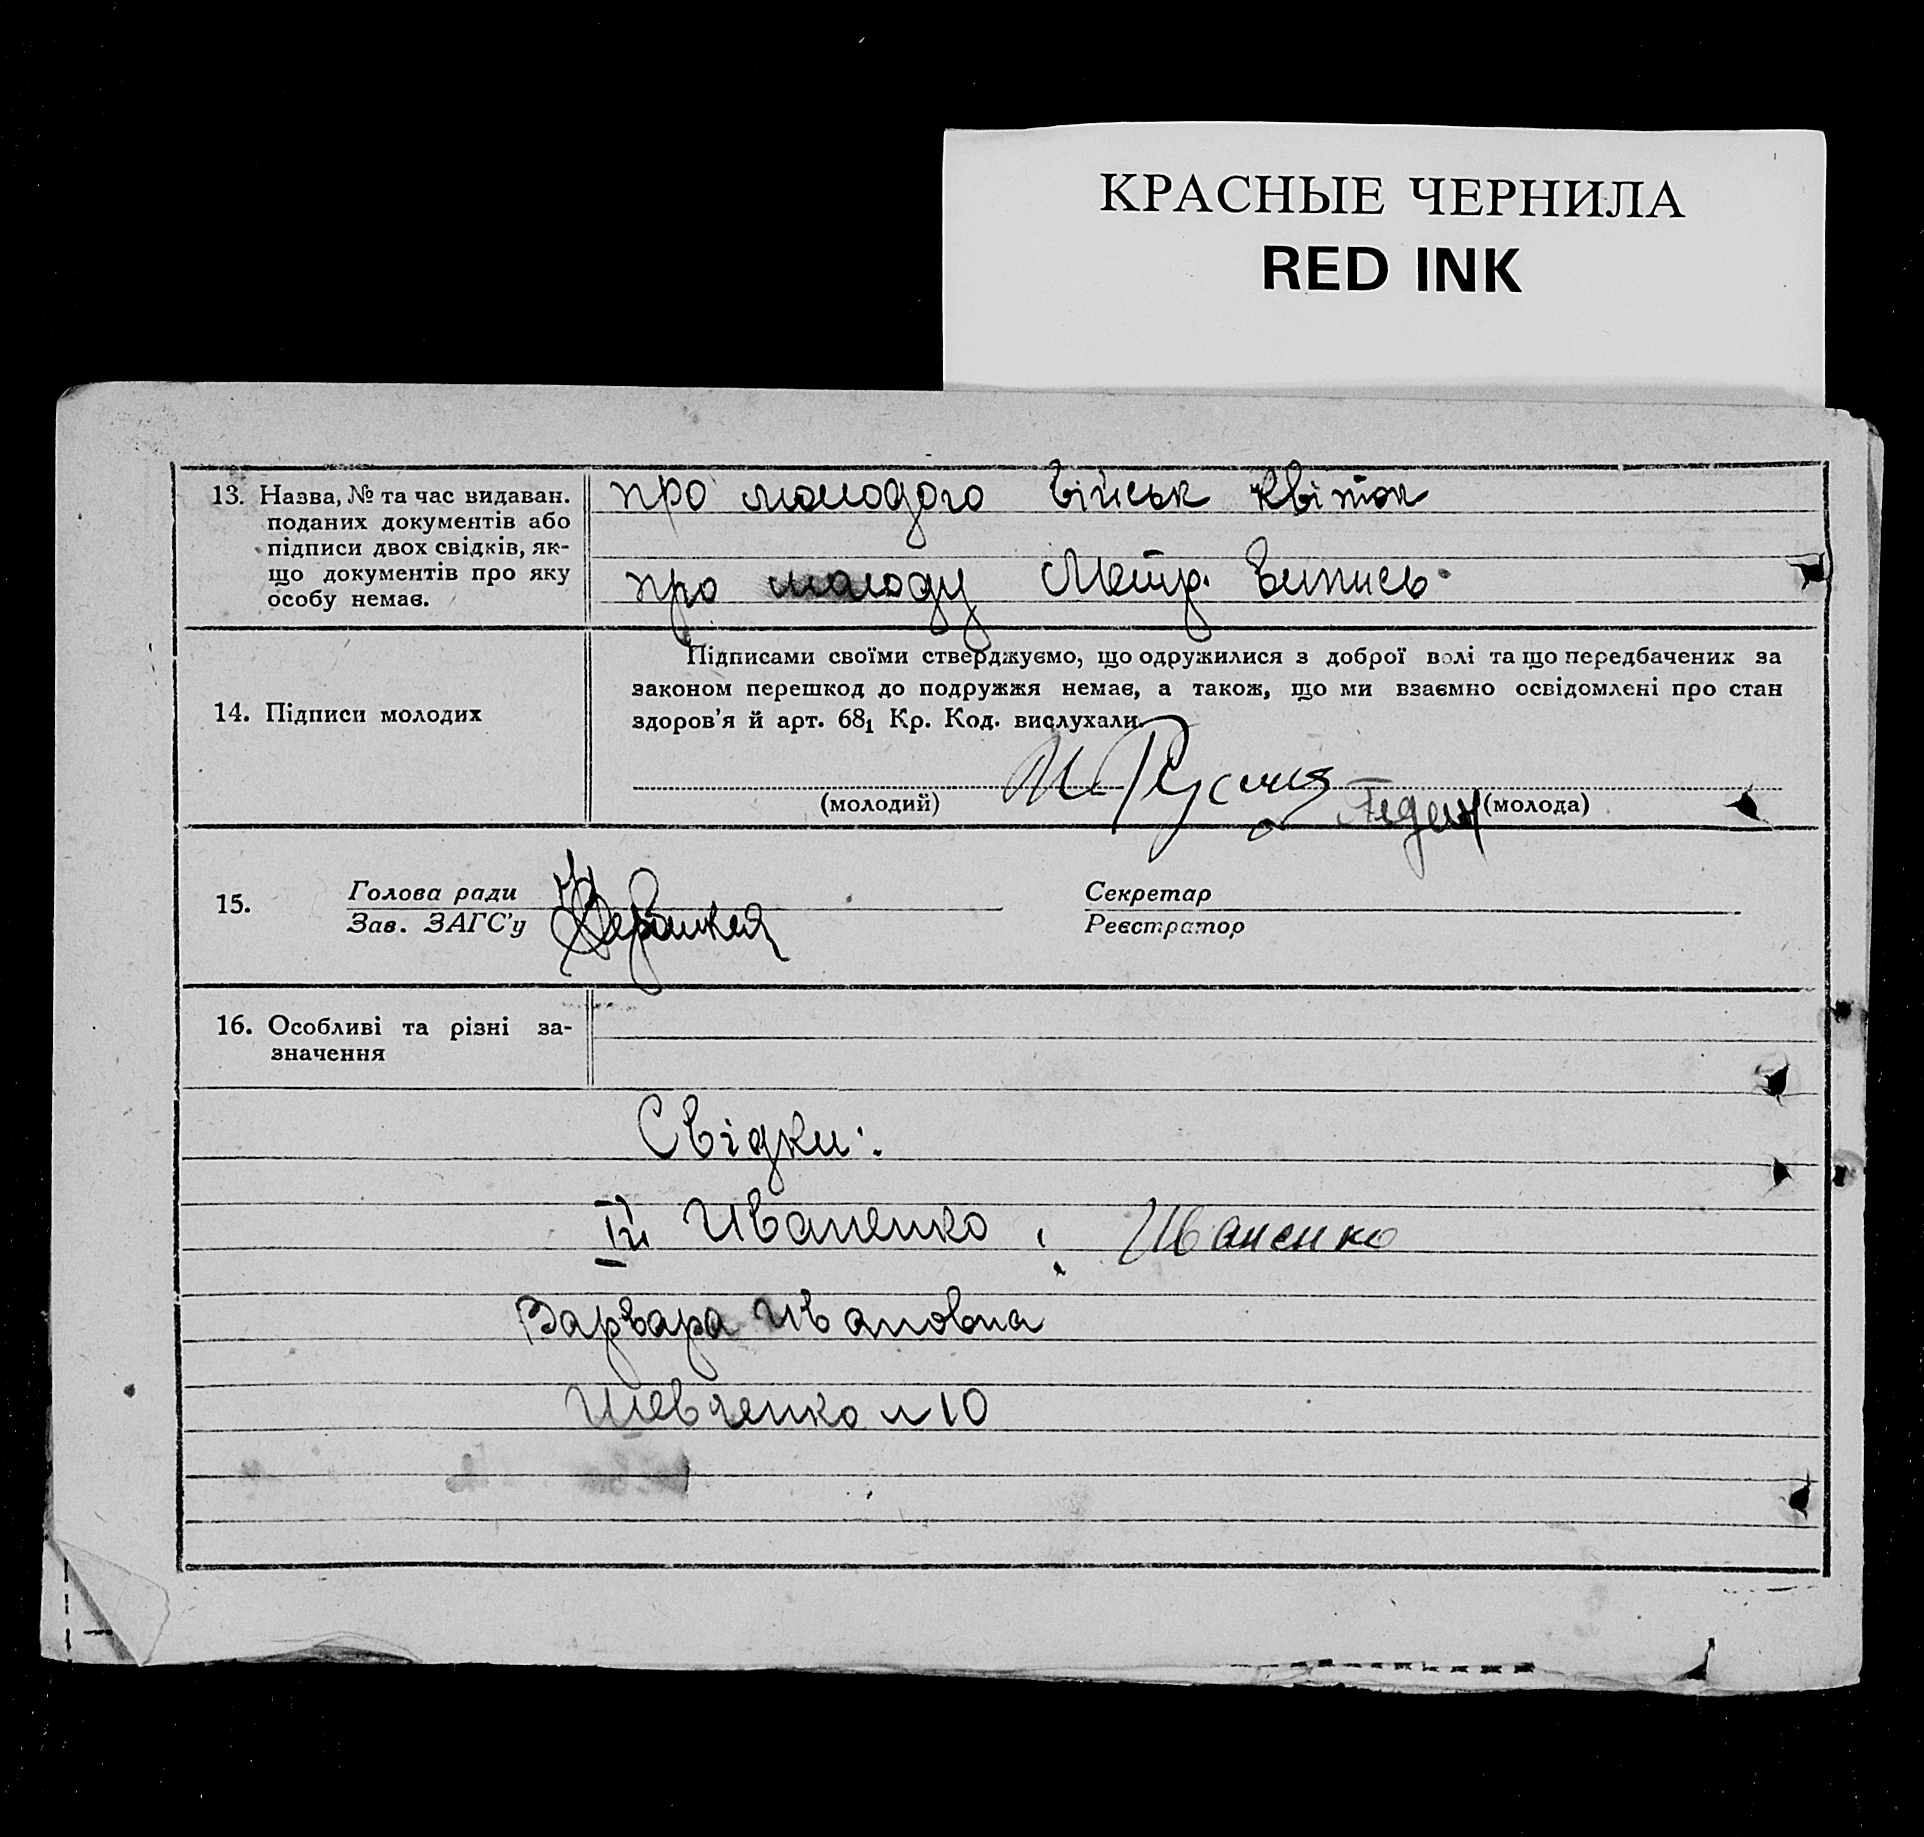 КРАСНЫЕ ЧЕРНИЛА
RED INK
13. Назва, № та час видаван.
поданих документів або
підписи двох свідків, як-
що документів про яку
особу немає.
про молодого військ квіток
про молоду Метр. Випись
14. Підписи молодих
Підписами своїми стверджуємо, що одружилися з доброї волі та що передбачених за
законом перешкод до подружжя немає, а також, що ми взаємно освідомлені про стан
здоров'я й арт. 68₁ Кр. Код. вислухали.
(молодий)
(молода)
15. Голова ради
Зав. ЗАГС'у
Секретар
Реєстратор
16. Особливі та різні за-
значення
Свідки:
Иваненко : Иваненко
Варвара Ивановна
Шевченко 10